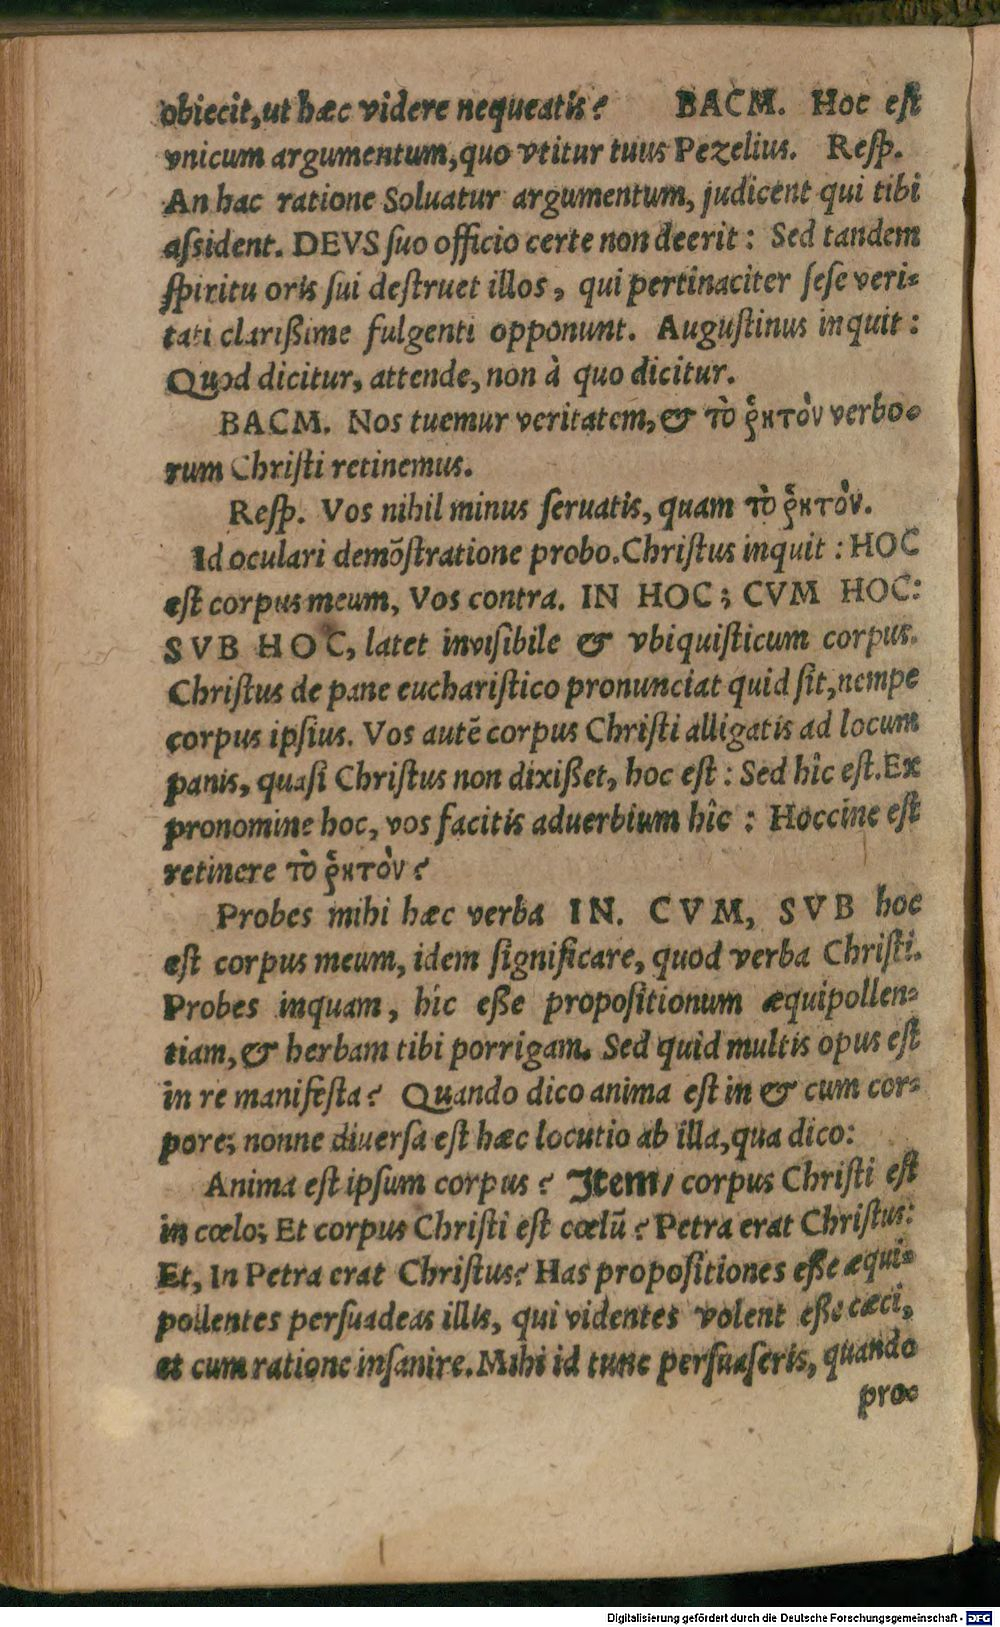 obiecit, ut hæc videre nequeatis? BACM. Hoc eſt
vnicum argumentum, quo vtitur tuus Pezelius. Reſp.
An hac ratione Soluatur argumentum, judicent qui tibi
aſsident. DEVS ſuo officio certe non deerit: Sed tandem
ſpiritu oris ſui deſtruet illos, qui pertinaciter ſeſe veri-
tati clarißime fulgenti opponunt. Auguſtinus inquit:
Quod dicitur, attende, non à quo dicitur.
BACM. Nos tuemur veritatem, & τὸ ῥητὸν verbo-
rum Chriſti retinemus.
Reſp. Vos nihil minus ſeruatis, quam τὸ ῥητὸν.
Id oculari demõſtratione probo. Chriſtus inquit: HOC
eſt corpus meum, Vos contra. IN HOC; CVM HOC:
SVB HOC, latet inviſibile & vbiquiſticum corpus.
Chriſtus de pane euchariſtico pronunciat quid ſit, nempe
corpus ipſius. Vos autẽ corpus Chriſti alligatis ad locum
panis, quaſi Chriſtus non dixißet, hoc eſt: Sed hîc eſt. Ex
pronomine hoc, vos facitis aduerbium hîc: Hoccine eſt
retinere τὸ ῥητὸν?
Probes mihi hæc verba IN. CVM, SVB hoc
eſt corpus meum, idem ſignificare, quod verba Chriſti.
Probes inquam, hîc eße propoſitionum æquipollen-
tiam, & herbam tibi porrigam. Sed quid multis opus eſt
in re manifeſta? Quando dico anima eſt in & cum cor-
pore; nonne diuerſa eſt hæc locutio ab illa, qua dico:
Anima eſt ipſum corpus? Item/ corpus Chriſti eſt
in cœlo; Et corpus Chriſti eſt cœlũ? Petra erat Chriſtus:
Et, In Petra erat Chriſtus? Has propoſitiones eße æqui-
pollentes perſuadeas illis, qui videntes volent eße cæci,
et cum ratione inſanire. Mihi id tunc perſuaſeris, quando
pro-
Digitalisierung gefördert durch die Deutsche Forschungsgemeinschaft - DFG